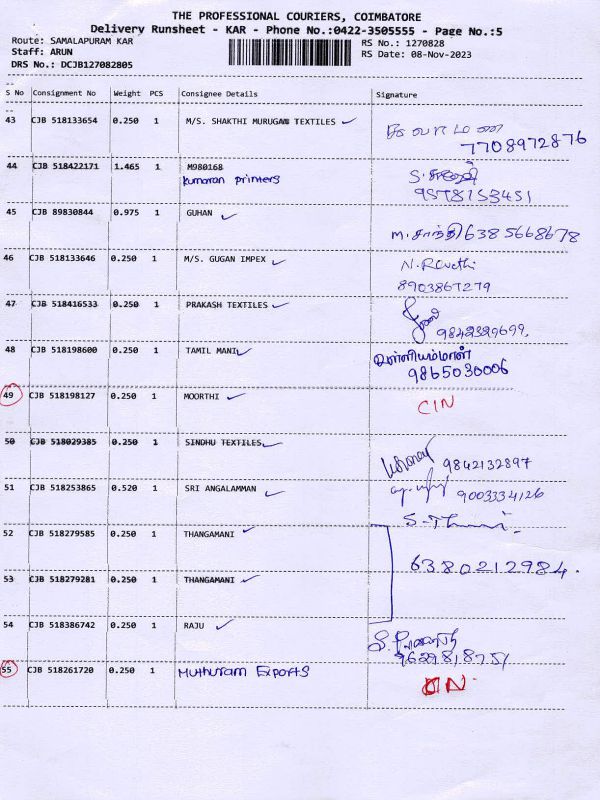 THE PROFESSIONAL COURIERS, COIMBATORE
Delivery Runsheet - KAR - Phone No.:0422-3505555 - Page No.:5
Route: SAMALAPURAM KAR RS No.: 1270828
Staff: ARUN RS Date: 08-Nov-2023
DRS No.: DCJB127082805
S No Consignment No Weight PCS Consignee Details Signature
43 CJB 518133654 0.250 1 M/S. SHAKTHI MURUGAN TEXTILES
7708972876
44 CJB 518422171 1.465 1 M980168
Kumaran printers
9578153451
45 CJB 89830844 0.975 1 GUHAN
M. சாந்தி 6385668678
46 CJB 518133646 0.250 1 M/S. GUGAN IMPEX N. Revathi
8903867279
47 CJB 518416533 0.250 1 PRAKASH TEXTILES
9842329699.
48 CJB 518198600 0.250 1 TAMIL MANI வள்ளியம்மாள்
9865030006
49 CJB 518198127 0.250 1 MOORTHI CIN
50 CJB 518029385 0.250 1 SINDHU TEXTILES
9842132897
51 CJB 518253865 0.520 1 SRI ANGALAMMAN 9003334126
52 CJB 518279585 0.250 1 THANGAMANI
6380212984.
53 CJB 518279281 0.250 1 THANGAMANI
54 CJB 518386742 0.250 1 RAJU
9629818751
55 CJB 518261720 0.250 1 Muthuram Exports CIN